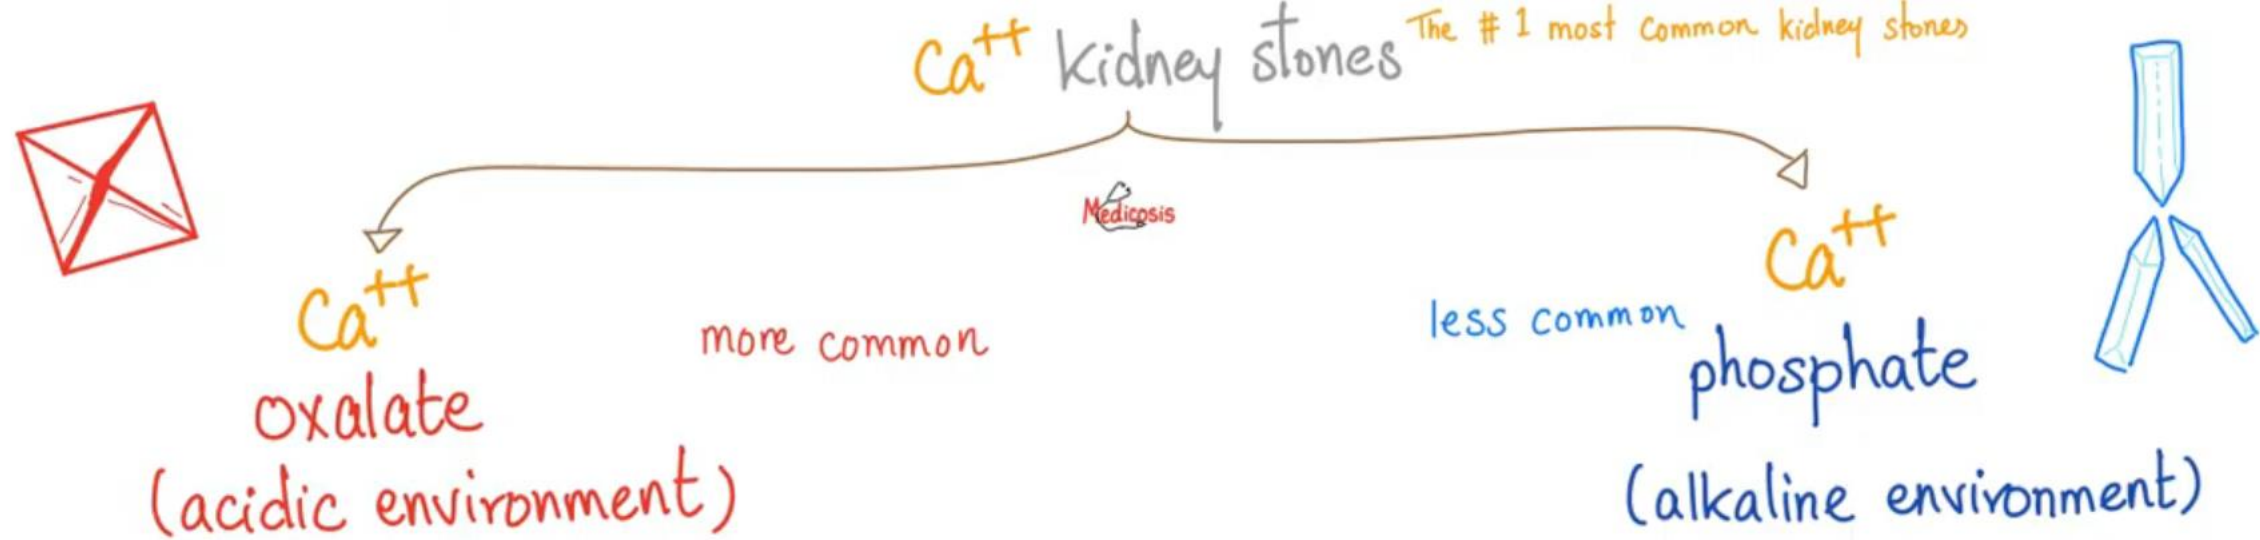 Ca++ kidney stones The # 1 most common kidney stones
Medicosis
Ca++
oxalate
(acidic environment)
more common
less common
Ca++
phosphate
(alkaline environment)